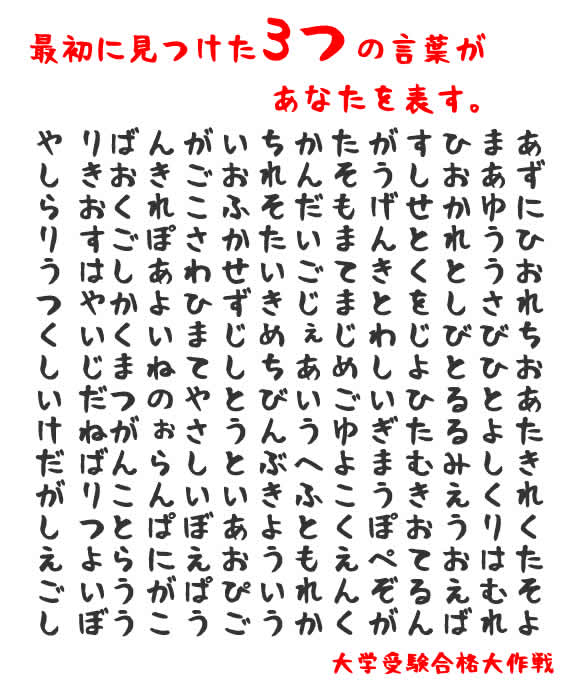 最初に見つけた3つの言葉が
あなたを表す。
やりばんがいちかたがすひまあ
しきおきごおれんそうしおあず
らおくれこふそだもげせかゆに
りすごぽさかたいまんとれうひ
うはしあわせいごてきくとうお
つやかよひずきじまとをしされ
くいくいまじめぇじわじびびち
しじまねてしちあめしよとひお
いだつのやとびいごいひるとあ
けねがぉさうんうゆぎたるよた
だばんらしとぶへよまむみしき
がりこんいいきふこうきえくれ
しつとぱぼあよとくぽおうりく
えよらにえおうもえぺておはた
ごいうがぱぴいれんぞるえむそ
しぼうこうごうかくがんばれよ
大学受験合格大作戦